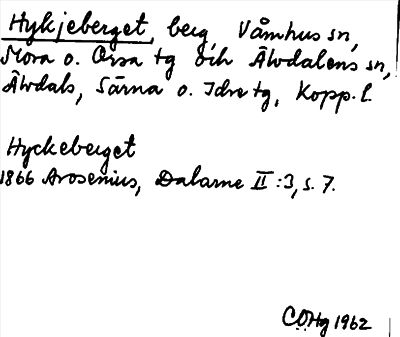 Hykjeberget, berg Våmhus sn,
Mora o. Orsa tg och Älvdalens sn,
Älvdals, Särna o. Idre tg, Kopp. l.
Hyckeberget
1866 Arosenius, Dalarne II:3, s. 7.
COHg 1962